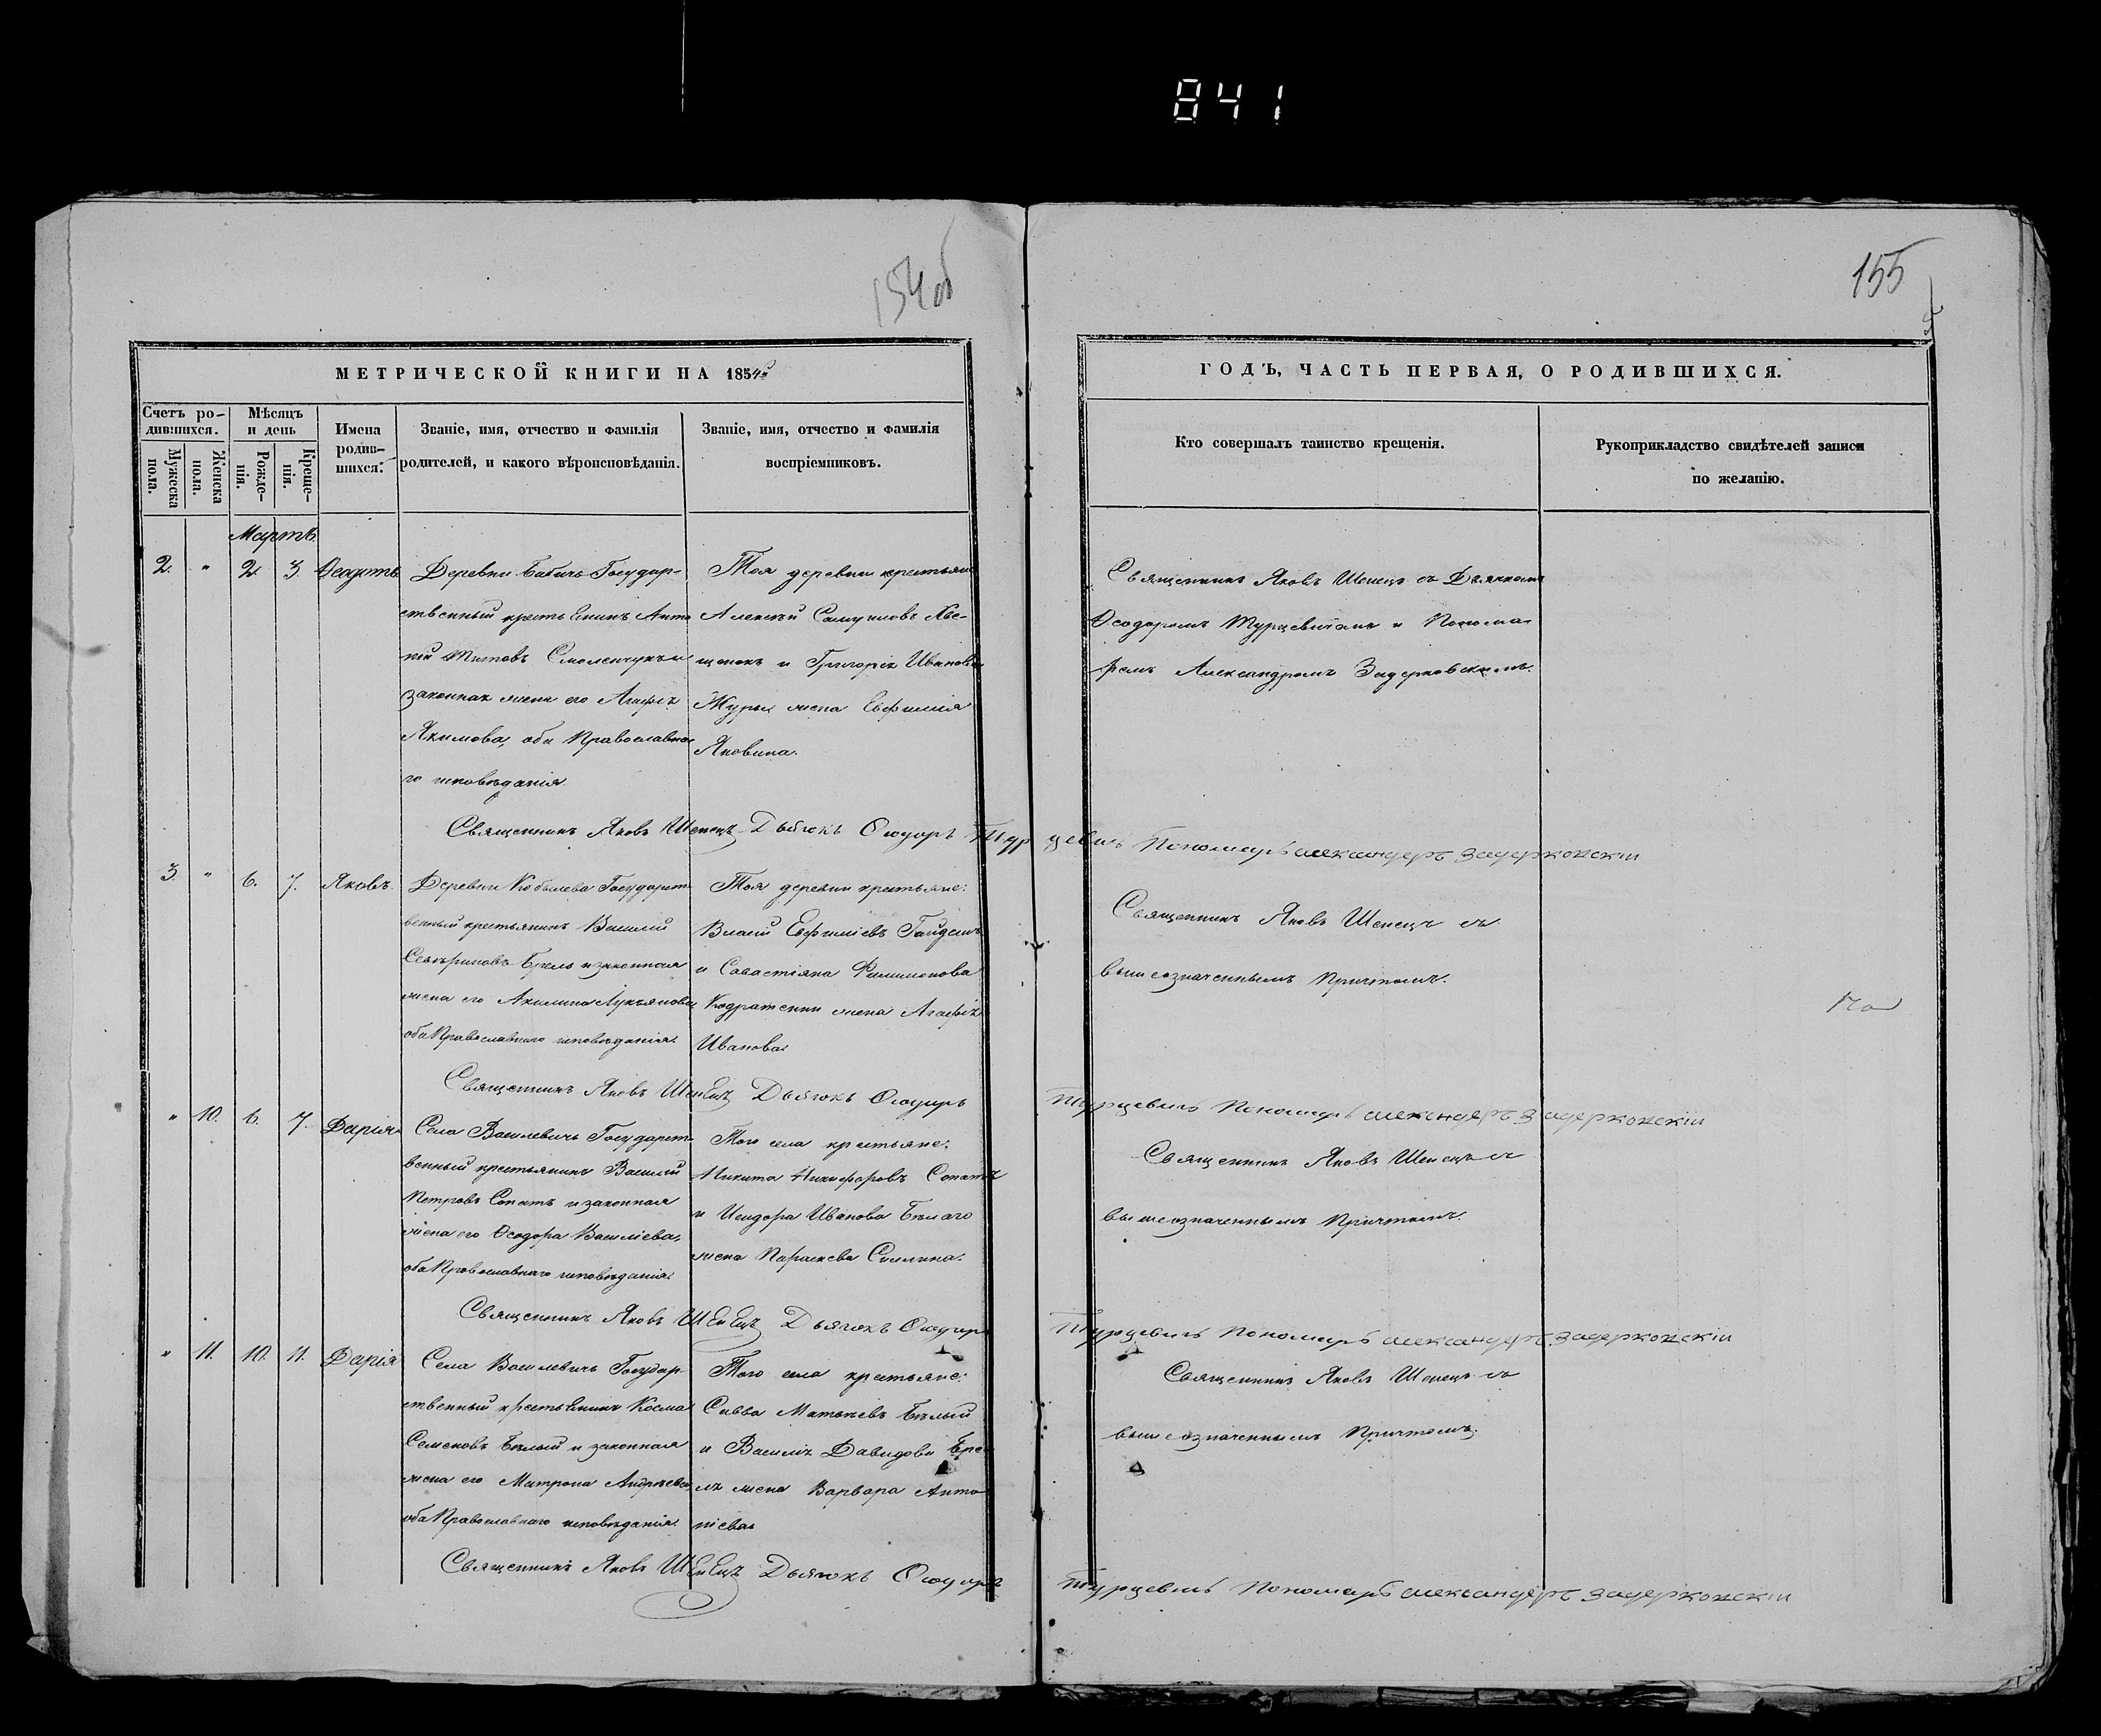 841
154 об
155
МЕТРИЧЕСКОЙ КНИГИ НА 1854й
ГОДЪ, ЧАСТЬ ПЕРВАЯ, О РОДИВШИХСЯ.
Счетъ ро-
дившихся.
Мужеска
пола.
Женска
пола.
Мѣсяцъ
и день
Рожде-
нія.
Креще-
нія.
Имена
родив-
шихся.
Званіе, имя, отчество и фамилія
родителей, и какого вѣроисповѣданія.
Званіе, имя, отчество и фамилія
воспріемниковъ.
Кто совершалъ таинство крещенія.
Рукоприкладство свидѣтелей записи
по желанію.
Мартъ.
2. " 2. 3. Ѳеодотъ
Деревни Бабичъ Государ-
ственный крестьянинъ Анто
ній Титовъ Смоленчукъ и
законная жена его Агафія
Якимова, оба Православна
го исповѣданія.
Тоя деревни крестьяне
Алексѣй Самуиловъ Хве-
щенокъ и Григорія Иванова
Журы жена Евфимія
Яковина.
Священникъ Яковъ Шепецъ съ Дьячкомъ
Ѳеодоромъ Турцевичемъ и Понома-
ремъ Александромъ Задерковскимъ.
Священникъ Яковъ Шепецъ Дьячокъ Ѳеодоръ Турцевичъ Пономарь Александеръ Задерковскій
3. " 6. 7. Яковъ.
Деревни Кобылева Государст-
венный крестьянинъ Василій
Севериновъ Брель и законная
жена его Акилина Лукьянова
оба Православнаго исповѣданія.
Тоя деревни крестьяне:
Власій Евфиміевъ Гайдашъ
и Савастіяна Филимонова
Кодратенки жена Агафія
Иванова.
Священникъ Яковъ Шепецъ съ
вышеозначеннымъ Причтомъ.
Священникъ Яковъ Шепецъ Дьячокъ Ѳеодоръ
Турцевичъ Пономарь Александеръ Задерковскій
" 10. 6. 7. Дарія
Села Василевичъ Государст-
венный крестьянинъ Василій
Петровъ Сопотъ и законная
жена его Ѳеодора Василіева,
оба Православнаго исповѣданія.
Того села крестьяне:
Никита Никифоровъ Сопотъ
и Исидора Иванова Бѣлаго
жена Параскева Силина.
Священникъ Яковъ Шепецъ съ
вышеозначеннымъ Причтомъ.
Священникъ Яковъ Шепецъ Дьячокъ Ѳеодоръ
Турцевичъ Пономарь Александеръ Задерковскій
" 11. 10. 11. Дарія
Села Василевичъ Государ-
ственный крестьянинъ Косма
Семеновъ Бѣлый и законная
жена его Матрона Андреева
оба Православнаго исповѣданія.
Того села крестьяне:
Савва Матвѣевъ Бѣлый
и Василія Давидова Бре-
ля жена Варвара Анто
ніева.
Священникъ Яковъ Шепецъ съ
вышеозначеннымъ Причтомъ.
Священникъ Яковъ Шепецъ Дьячокъ Ѳеодоръ
Турцевичъ Пономарь Александеръ Задерковскій